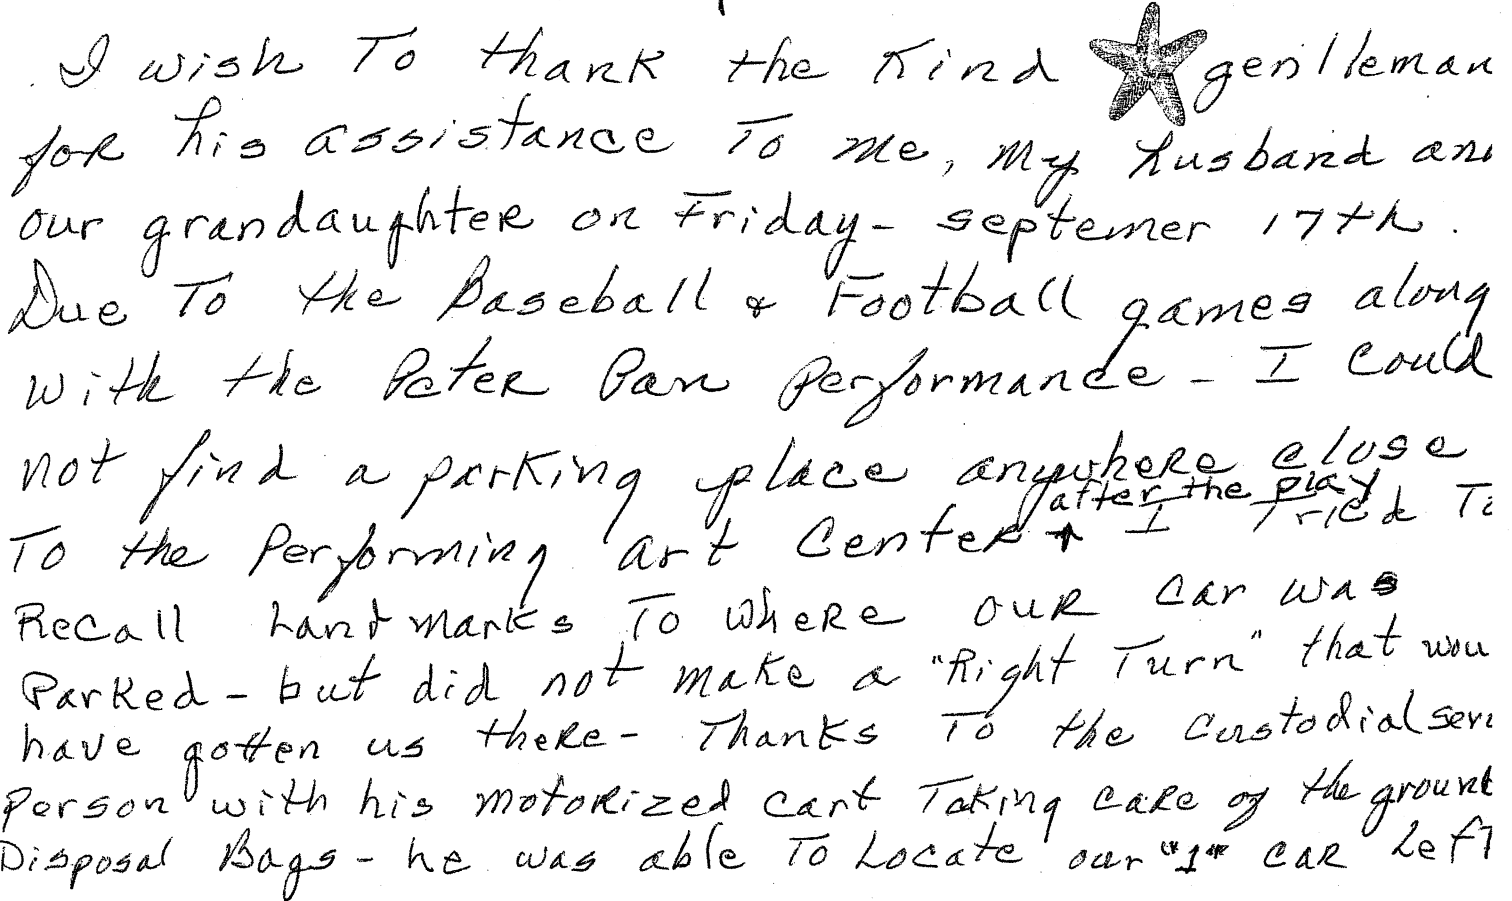 I wish To thank the Kind gentleman
for his assistance To me, my husband an
our grandaughter on Friday- septemer 17th.
Due To the Baseball & Football games along
with the Peter Pan performance - I could
not find a parking place anywhere close
after the play
To the Performing art Center + I Tried To
Recall landmarks To where our car was
Parked - but did not make a "Right Turn" that wou
have gotten us there - Thanks To the Custodial serv
person with his motorized cart Taking care of the ground
Disposal Bags - he was able To Locate our "1" car Left